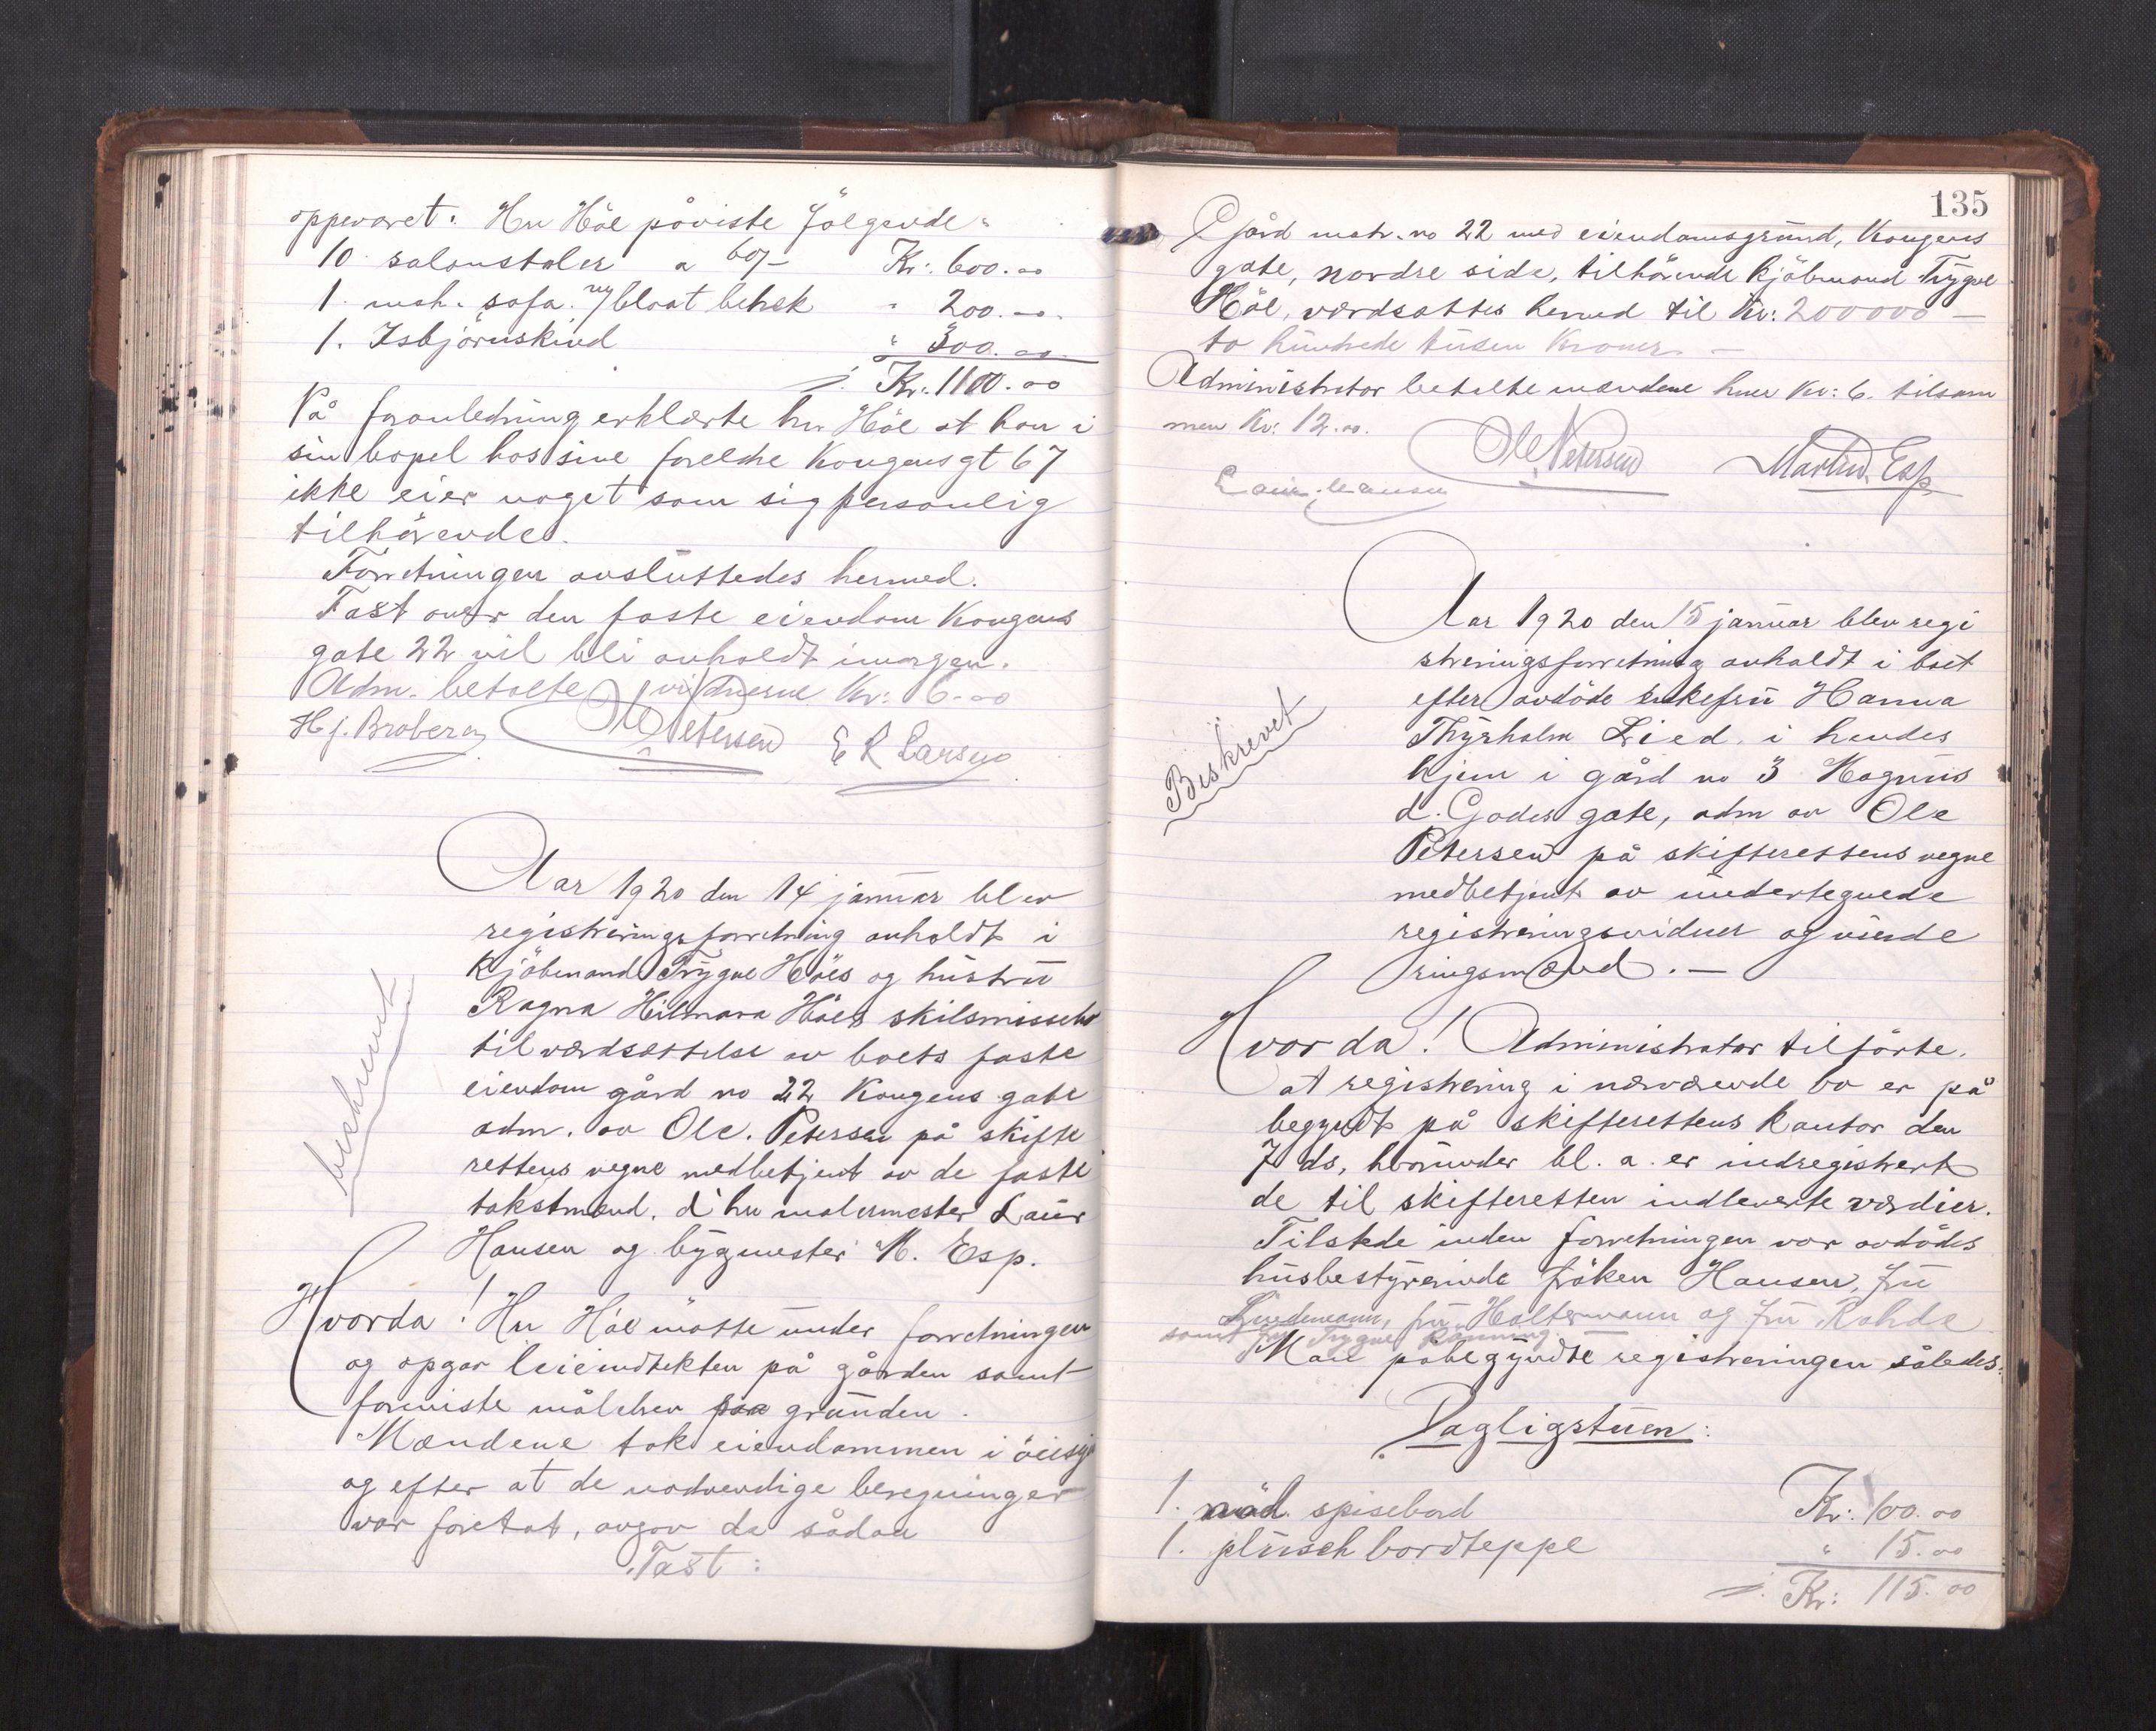 oppevaret. Hr Höe påviste følgende:
10 salonstoler a 60/- Kr: 600.00
1. mah. sofa m/ blaat betræk " 200.00
1. Isbjörnskind " 300.00
Kr: 1100.00
På foranledning erklærte hr Höe at han i
sin bopel hos sine forældre Kongensgt 67
ikke eier noget som sig personlig
tilhörende.
Forretningen avsluttedes hermed.
Taxt over den faste eiendom Kongens
gate 22 vil bli avholdt imorgen.
Adm. betalte vidnerne Kr: 6.00
H J. Broberg Ole Petersen E R Larsen
Aar 1920 den 14 januar blev
registreringsforretning avholdt i
Kjöbmand Trygve Höes og hustru
Ragna Hilmara Höes skilsmissebo
til værdsættelse av boets faste
eiendom gård no 22 Kongens gate
adm. av Ole Petersen på skifte
rettens vegne medbetjent av de faste
takstmænd, d'hrr malermester Laur
Hansen og bygmester M. Esp.
beskrevet
Hvorda! Hr Höe møtte under forretningen
og opgav leieindtekten på gården samt
foreviste målebrev paa grunden.
Mændene tok eiendommen i öiesyn
og efter at de nødvendige beregninger
var foretat, avgav de sådan
Taxt:
135
Gård matr. no 22 med eiendomsgrund, Kongens
gate, nordre side, tilhörende Kjöbmand Trygve
Höe, værdsattes herved til Kr: 200000 —
to hundrede tusen Kroner. —
Administrator betalte mændene hver Kr: 6. tilsam
men Kr: 12.00.
Laur. Hansen Ole Petersen Martin Esp
Aar 1920 den 15 januar blev regi
streringsforretning avholdt i boet
efter avdöde enkefru Hanna
Thyrholm Lied, i hendes
hjem i gård no 3 Magnus
d. Godes gate, adm av Ole
Petersen på skifterettens vegne
medbetjent av undertegnede
registreringsvidner og vurde
ringsmænd. —
Beskrevet
Hvorda! Administrator tilförte,
at registrering i nærværende bo er på
begyndt på skifterettens kontor den
7 ds, hvorunder bl. a. er indregistrert
de til skifteretten indleverte værdier.
Tilstede under forretningen var avdödes
husbestyrerinde fröken Hansen, fru
Lindemann, fru Haltermann og fru Rohde
samt fru Trygve Rönning.
Man påbegyndte registreringen således:
Dagligstuen:
1. nöd. spisebord Kr: 100.00
1. plüsch bordteppe " 15.00
Kr: 115.00